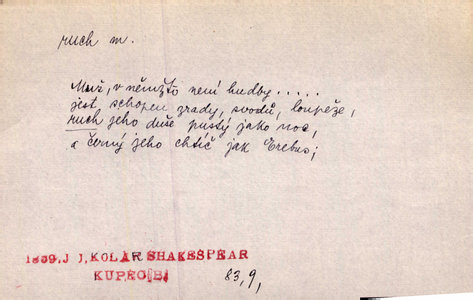 ruch m.
Muž, v němžto není hudby.....
jest schopen zrady, svodů, loupeže,
ruch jeho duše pustý jako noc,
a černý jeho chtíč jak Erebus;
1859, J J, KOLÁR SHAKESPEAR
KUPEC(B)
83,9,